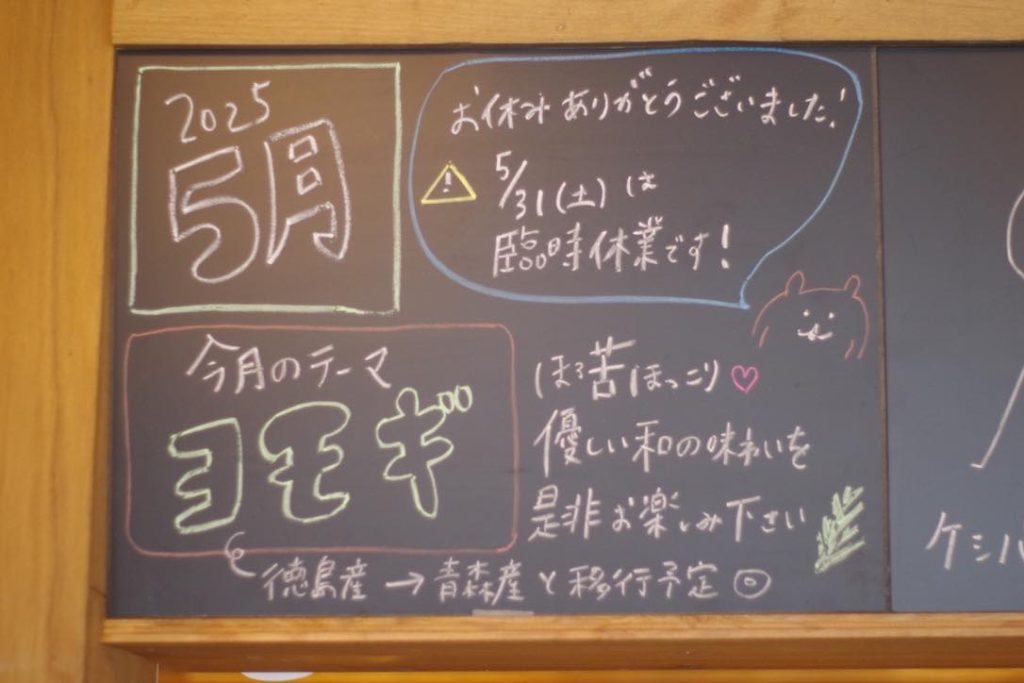 2025
5月
お休みありがとうございました!
5/31(土)は
臨時休業です!
今月のテーマ
ヨモギ
ほろ苦ほっこり♡
優しい和の味わいを
是非お楽しみ下さい
徳島産→青森産と移行予定◎
ケシ